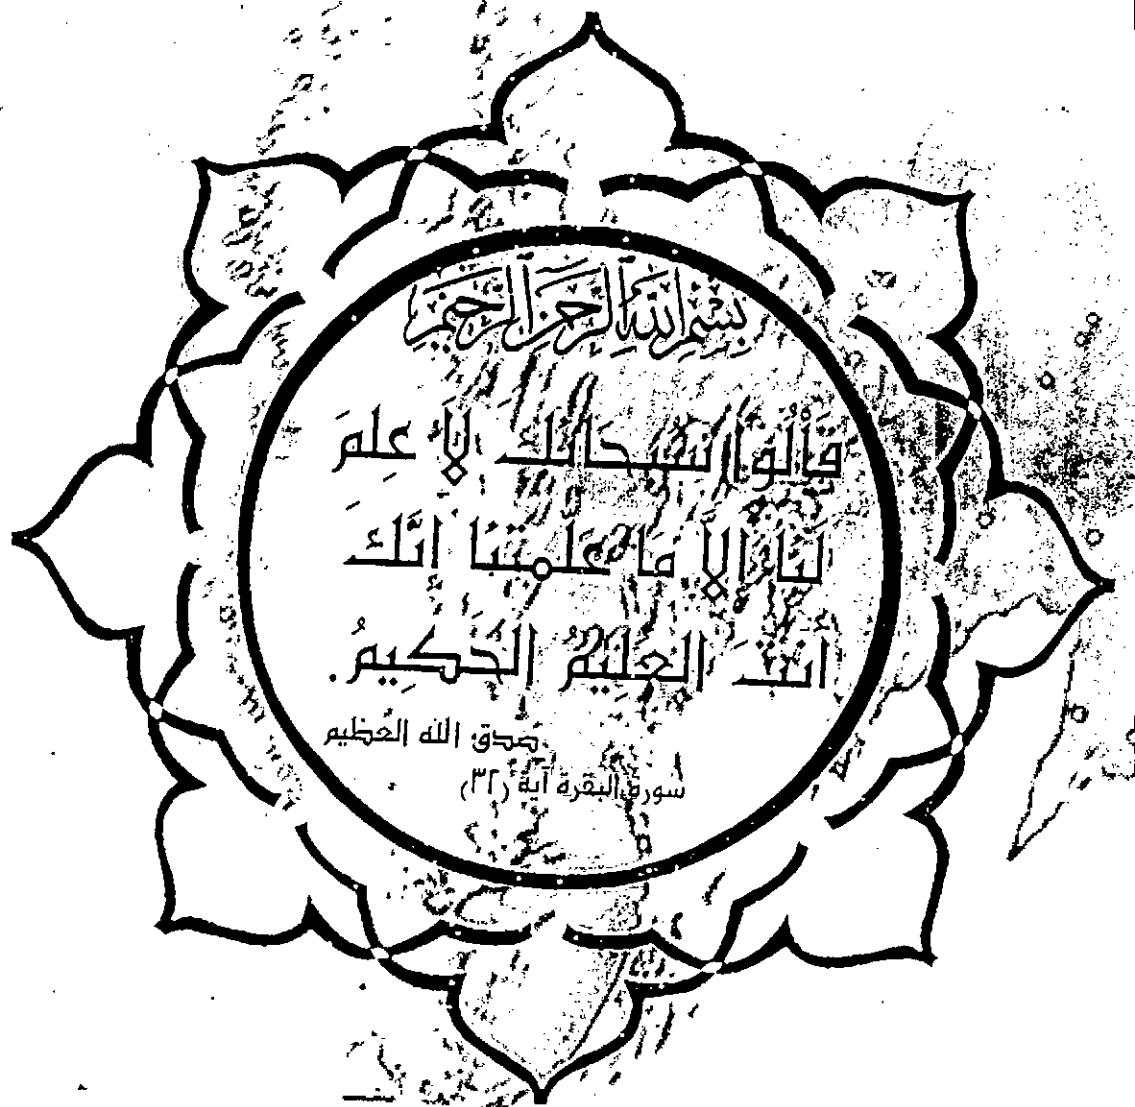 بِسْمِ اللَّهِ الرَّحْمَنِ الرَّحِيمِ
قَالُوا سُبْحَانَكَ لَا عِلْمَ
لَنَا إِلَّا مَا عَلَّمْتَنَا إِنَّكَ
أَنْتَ الْعَلِيمُ الْحَكِيمُ .
صدق الله العظيم
سورة البقرة آية (٣٢)